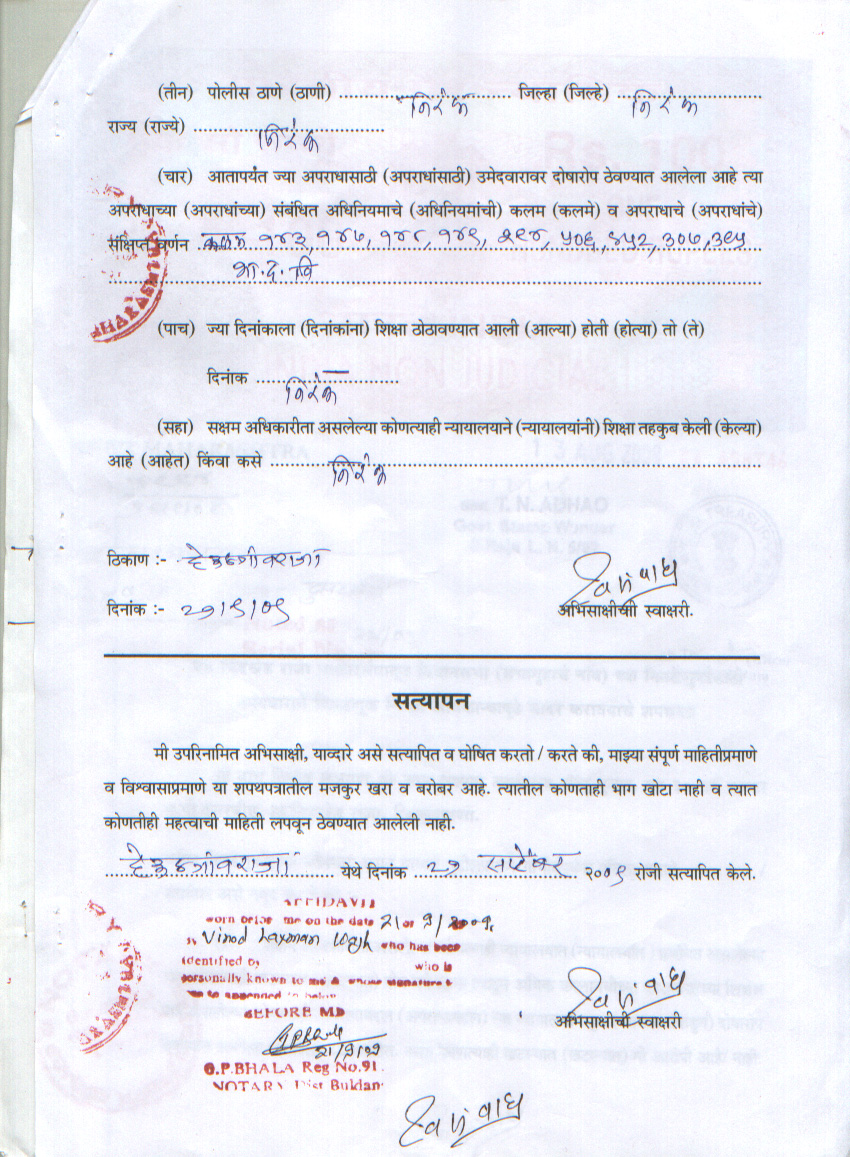 (तीन) पोलीस ठाणे (ठाणी) ........ निरंक ........ जिल्हा (जिल्हे) ........ निरंक
राज्य (राज्ये) ........ निरंक ........
(चार) आतापर्यंत ज्या अपराधासाठी (अपराधांसाठी) उमेदवारावर दोषारोप ठेवण्यात आलेला आहे त्या
अपराधाच्या (अपराधांच्या) संबंधित अधिनियमाचे (अधिनियमांची) कलम (कलमे) व अपराधाचे (अपराधांचे)
संक्षिप्त वर्णन कलम १४३, १४७, १४८, १४९, २९४, ५०६, ४५२, ३०७, ३९५
भा.द.वि
(पाच) ज्या दिनांकाला (दिनांकांना) शिक्षा ठोठावण्यात आली (आल्या) होती (होत्या) तो (ते)
दिनांक ........ निरंक ........
(सहा) सक्षम अधिकारीता असलेल्या कोणत्याही न्यायालयाने (न्यायालयांनी) शिक्षा तहकुब केली (केल्या)
आहे (आहेत) किंवा कसे ........ निरंक ........
ठिकाण :- देऊळगांवराजा
दिनांक :- २१/९/०९
अभिसाक्षीची स्वाक्षरी.
सत्यापन
मी उपरिनामित अभिसाक्षी, याव्दारे असे सत्यापित व घोषित करतो / करते की, माझ्या संपूर्ण माहितीप्रमाणे
व विश्वासाप्रमाणे या शपथपत्रातील मजकुर खरा व बरोबर आहे. त्यातील कोणताही भाग खोटा नाही व त्यात
कोणतीही महत्वाची माहिती लपवून ठेवण्यात आलेली नाही.
देऊळगांवराजा येथे दिनांक २१ सप्टेंबर २००९ रोजी सत्यापित केले.
AFFIDAVIT
worn before me on the date 21 of 9/2009,
Vinod Laxman Wagh who has been
identified by who is
personally known to me & whose signature
is appended in below
BEFORE ME
21/9/09
G.P.BHALA Reg No.91
NOTARY Dist Buldan
अभिसाक्षीची स्वाक्षरी